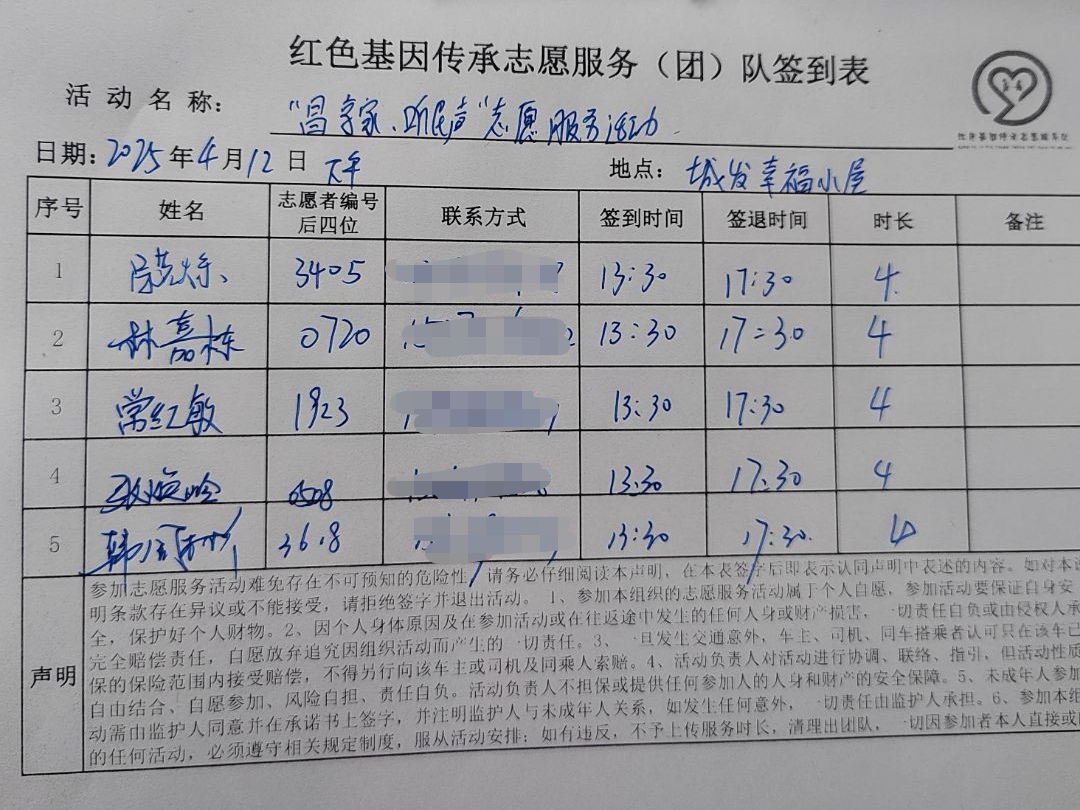 红色基因传承志愿服务（团）队签到表
活动名称： "昌享家、听民声"志愿服务活动
日期：2025年4月12日 下午 地点： 城发幸福小屋
序号 姓名 志愿者编号后四位 联系方式 签到时间 签退时间 时长 备注
1 3405 13:30 17:30 4
2 林嘉栋 0720 13:30 17:30 4
3 常红敏 1923 13:30 17:30 4
4 0508 13:30 17:30 4
5 韩 3618 13:30 17:30 4
声明
参加志愿服务活动难免存在不可预知的危险性，请务必仔细阅读本声明，在本表签字后即表示认同声明中表述的内容。如对本
明条款存在异议或不能接受，请拒绝签字并退出活动。1、参加本组织的志愿服务活动属于个人自愿，参加活动要保证自身安
全，保护好个人财物。2、因个人身体原因及在参加活动或在往返途中发生的任何人身或财产损害，一切责任自负或由侵权人承
完全赔偿责任，自愿放弃追究因组织活动而产生的一切责任。3、一旦发生交通意外，车主、司机、同车搭乘者认可只在该车已
保的保险范围内接受赔偿，不得另行向该车主或司机及同乘人索赔。4、活动负责人对活动进行协调、联络、指引，但活动性质
自由结合、自愿参加、风险自担、责任自负。活动负责人不担保或提供任何参加人的人身和财产的安全保障。5、未成年人参加
动需由监护人同意并在承诺书上签字，并注明监护人与未成年人关系，如发生任何意外，一切责任由监护人承担。6、参加本组
的任何活动，必须遵守相关规定制度，服从活动安排；如有违反，不予上传服务时长，清理出团队，一切因参加者本人直接或